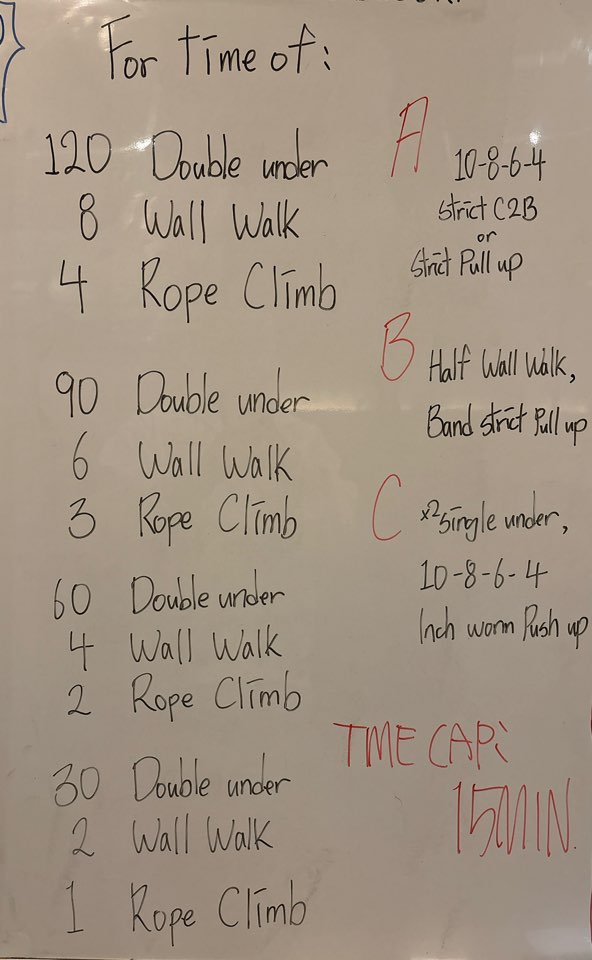 For time of:
120 Double under
8 Wall Walk
4 Rope Climb
90 Double under
6 Wall Walk
3 Rope Climb
60 Double under
4 Wall Walk
2 Rope Climb
30 Double under
2 Wall Walk
1 Rope Climb
A
10-8-6-4
Strict C2B
or
Strict Pull up
B
Half Wall Walk,
Band strict Pull up
C
x2 Single under,
10-8-6-4
Inch worm Push up
TIME CAP:
15MIN.